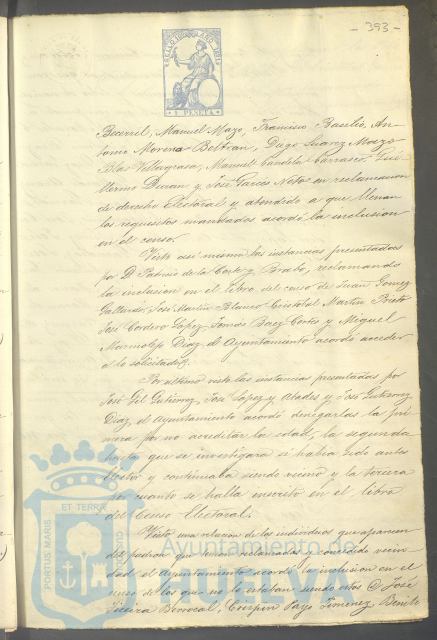 - 393 -
SELLO 10º AÑO 187
1 PESETA
Becerril, Manuel Mazo, Francisco Basilio, An-
tonio Moreno Beltran, Diego Suarez
Blas Villagrasa, Manuel Candela Carrasco, Gui-
llermo Duran y José Garces Neto en reclamacion
de derecho electoral y atendido a que llenan
los requisitos mandados acordó la inclusion
en el censo.
Visto asi mismo las instancias presentadas
por D. Patricio de la Corte y Brabo, reclamando
la inclusion en el libro del censo de Juan Gomez
Gallardo, José Martin Blanco Cristobal Martin Prieto
José Cordero Lopez Tomás Baez Cortes y Miguel
Marmolejo Diaz, el Ayuntamiento acordó acceder
a lo solicitado.
Por ultimo vista las instancias presentadas por
José Gil Gutierrez, José Lopez y y José Gutierrez
Diaz, el Ayuntamiento acordó denegarlas la pri-
mera por no acreditar la edad, la segunda
hasta que se investigara si habia sido antes
elector y continuaba siendo vecino y la tercera
por cuanto se halla inscrito en el libro
del Censo Electoral.
Visto una relacion de los individuos que aparecen
del padron que tenian reclamada y concedida vecin-
dad el Ayuntamiento acordó la inclusion en el
censo de los que no lo estaban siendo estos D. José
Berrocal, Crispin Jimenez Benite
PORTUS MARIS ET TERRAE CUSTODIO
Ayuntamiento de
HUELVA